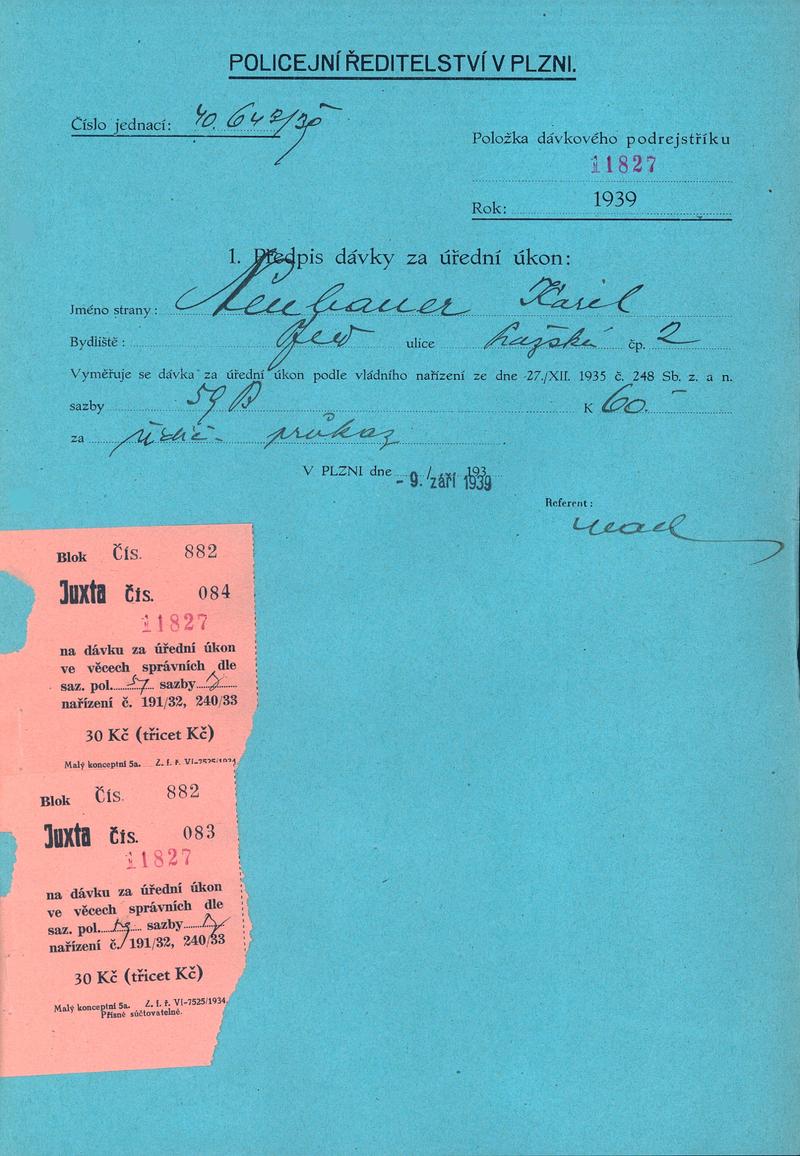 POLICEJNÍ ŘEDITELSTVÍ V PLZNI.
Číslo jednací: 40.642/39
Položka dávkového podrejstříku
11827
Rok: 1939
1. Předpis dávky za úřední úkon:
Jméno strany: Neubauer Karel
Bydliště: ulice Pražská čp. 2
Vyměřuje se dávka za úřední úkon podle vládního nařízení ze dne 27./XII. 1935 č. 248 Sb. z. a n.
sazby 59 B K 60.-
za řidič. průkaz
V PLZNI dne 193
- 9. září 1939
Referent:
Blok Čís. 882
Juxta čís. 084
11827
na dávku za úřední úkon
ve věcech správních dle
saz. pol. sazby
nařízení č. 191/32, 240/33
30 Kč (třicet Kč)
Malý konceptní 5a. Z. f. ř. VI-7525/1934
Blok Čís. 882
Juxta čís. 083
11827
na dávku za úřední úkon
ve věcech správních dle
saz. pol. sazby
nařízení č. 191/32, 240/33
30 Kč (třicet Kč)
Malý konceptní 5a. Z. f. ř. VI-7525/1934.
Přísně súčtovatelné.